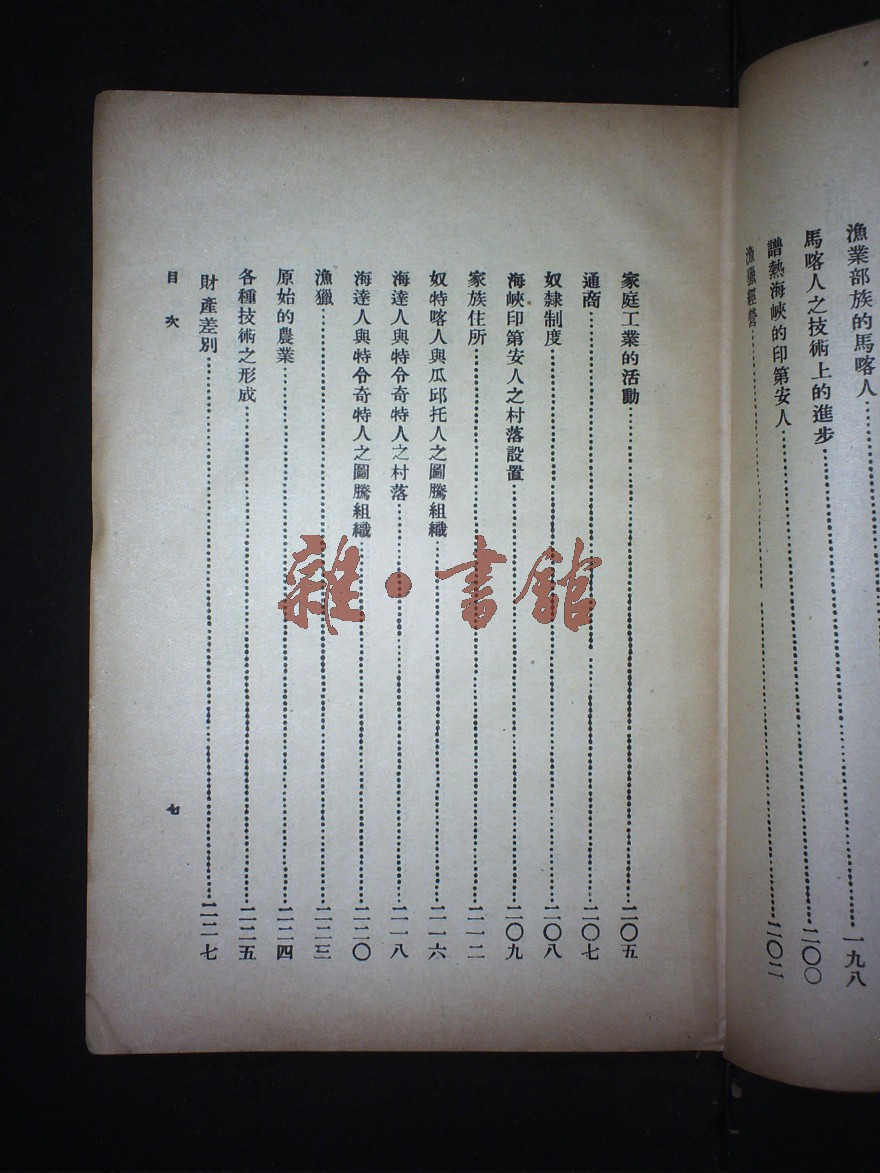 漁業部族的馬喀人……一九八
馬喀人之技術上的進步……二〇〇
譜熱海峽的印第安人……二〇二
漁獵經營……
家庭工業的活動……二〇五
通商……二〇七
奴隸制度……二〇八
海峽印第安人之村落設置……二〇九
家族住所……二一二
奴特喀人與瓜邱托人之圖騰組織……二一六
海達人與特令奇特人之村落……二一八
海達人與特令奇特人之圖騰組織……二二〇
漁獵……二二三
原始的農業……二二四
各種技術之形成……二二五
財產差別……二二七
目次
七
雜·書館